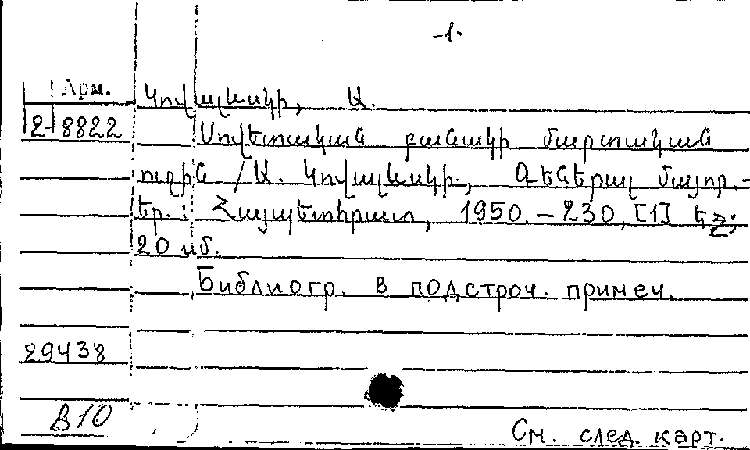 -1-
Арм.
2-8822
Կովալևսկի, Ա.
Սովետական բանակի մարտական
ուղին /Ա. Կովալևսկի., Գեներալ մայոր.-
Եր. : Հայպետհրատ, 1950.-230, [1] էջ;
20 սմ.
Библиогр. в подстроч. примеч.
29438
В10
См. след. карт.